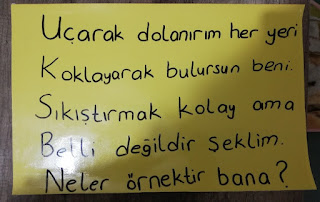 Uçarak dolanırım her yeri
Koklayarak bulursun beni.
Sıkıştırmak kolay ama
Belli değildir şeklim.
Neler örnektir bana?